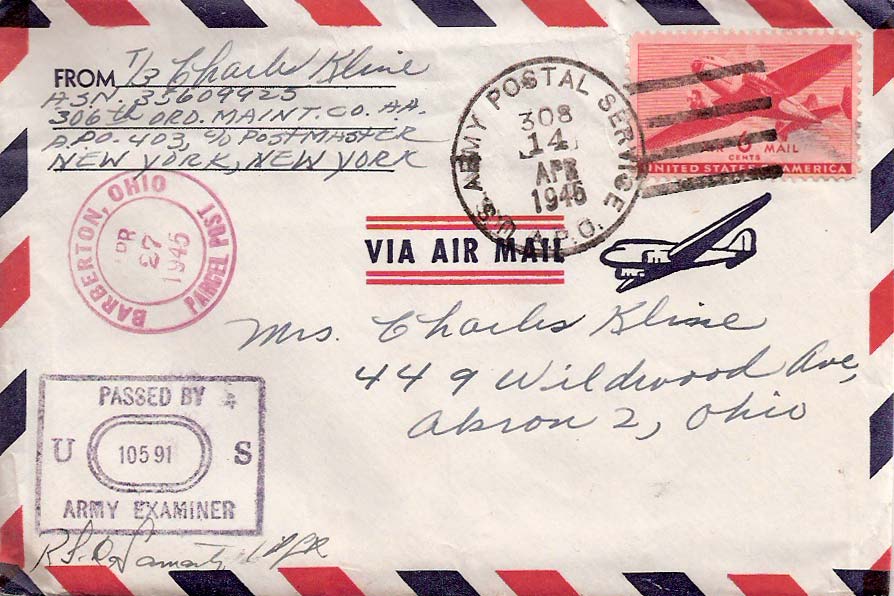 FROM T/3 Charles Kline
ASN. 35609925
306th ORD. MAINT. CO. AA.
A.P.O. 403, c/o POSTMASTER
NEW YORK, NEW YORK
U.S. ARMY POSTAL SERVICE A.P.O.
308
14
APR
1945
6
CENTS
MAIL
UNITED STATES AMERICA
BARBERTON, OHIO
27
1945
PARCEL POST
VIA AIR MAIL
Mrs. Charles Kline
449 Wildwood Ave,
Akron 2, Ohio
PASSED BY
U 10591 S
ARMY EXAMINER